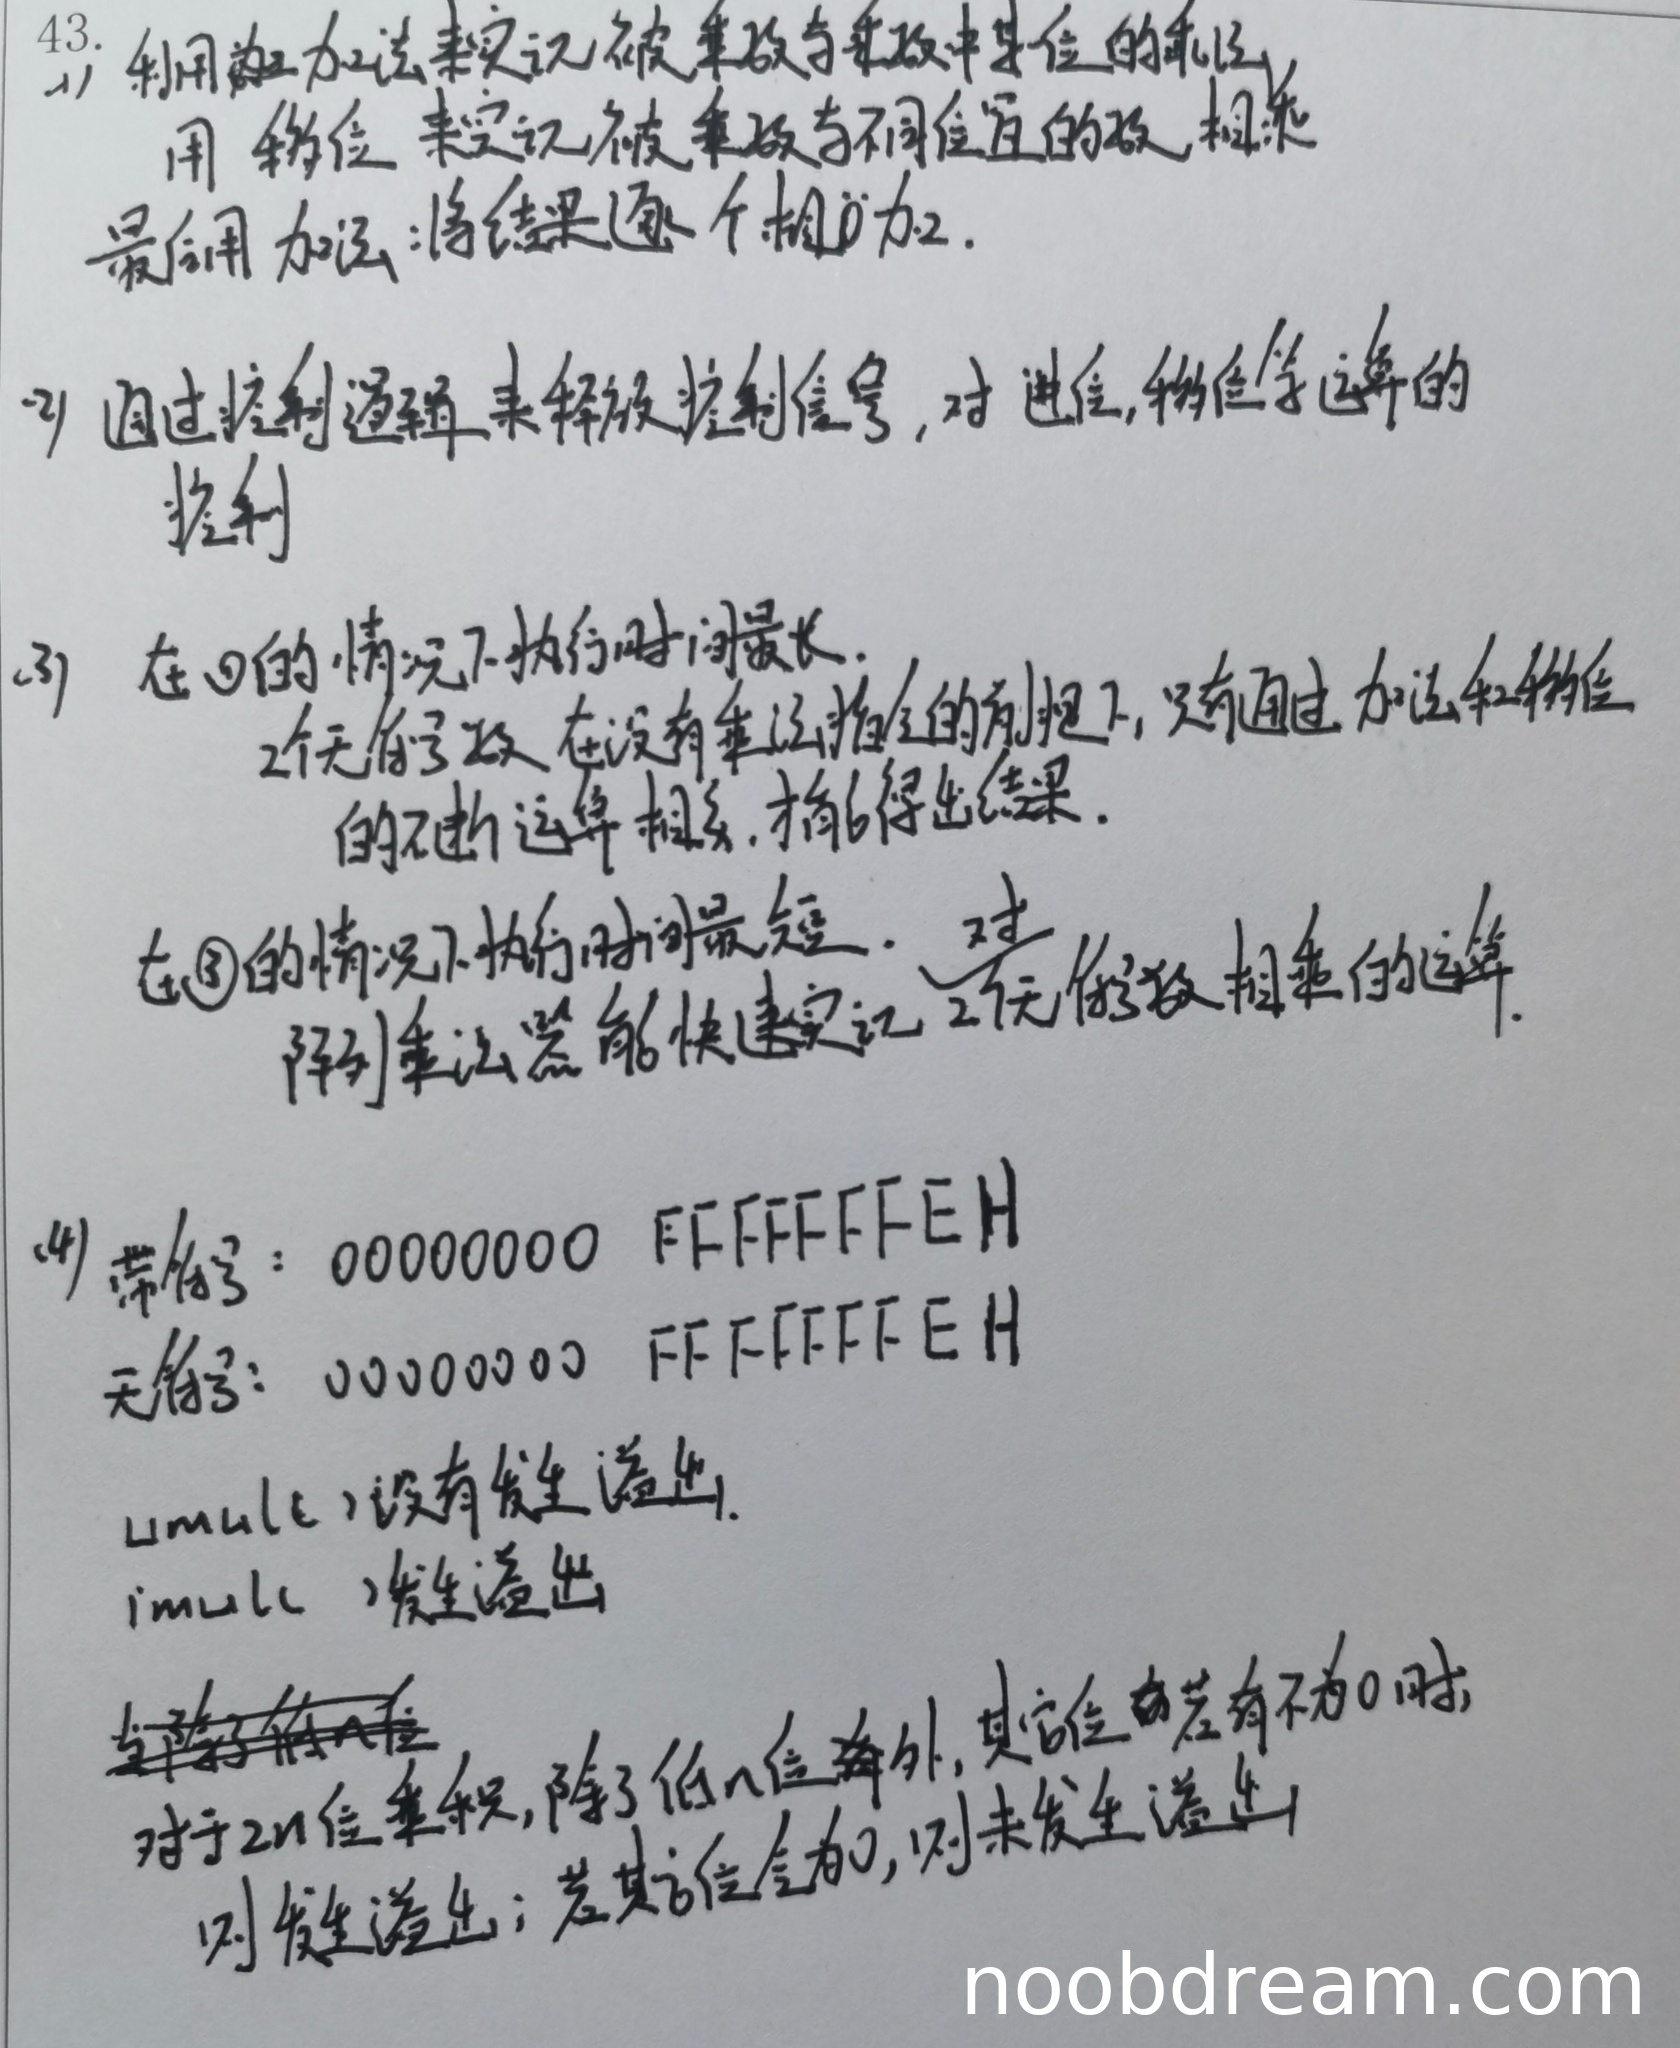 43.
(1) 利用加法来实现被乘数与乘数中某位的乘法,
用 移位 来实现被乘数与不同位置的数相乘
最后用加法:将结果逐个相加.
(2) 通过控制逻辑来释放控制信号,对进位,移位等运算的
控制
(3) 在①的情况下执行时间最长.
2个无符号数在没有乘法指令的前提下,只有通过加法和移位
的不断运算相乘.才能得出结果.
在③的情况下执行时间最短. 对
阵列乘法器能快速实现2个无符号数相乘的运算.
(4) 带符号: 00000000 FFFFFFFEH
无符号: 00000000 FFFFFFFEH
umult,没有发生溢出.
imult ,发生溢出
当除了低n位
对于2n位乘积,除了低n位外,其它位若有不为0时,
则发生溢出;若其它位全为0,则未发生溢出
noobdream.com